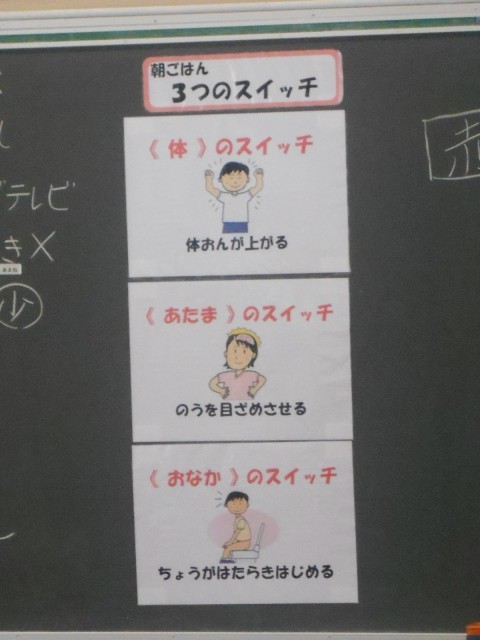 朝ごはん
3つのスイッチ
《 体 》のスイッチ
体おんが上がる
《 あたま 》のスイッチ
のうを目ざめさせる
《 おなか 》のスイッチ
ちょうがはたらきはじめる
テレビ
きX
少